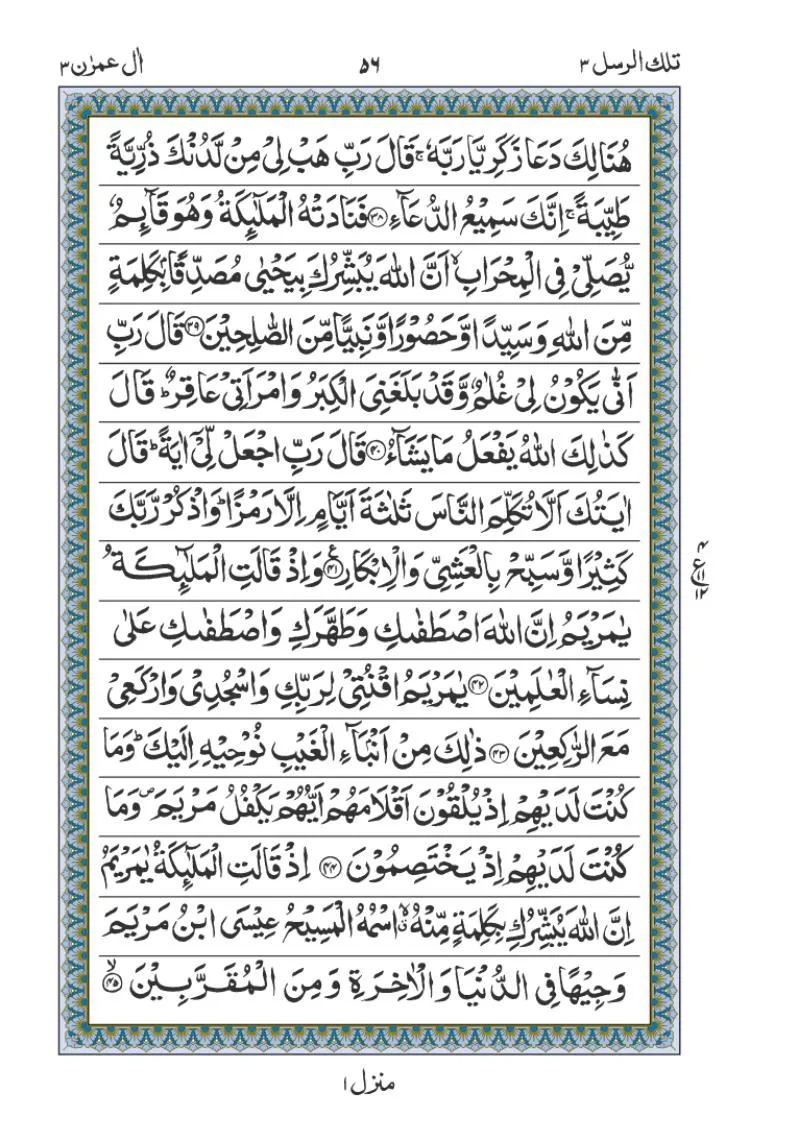 تلك الرسل ٣
٥٦
اٰل عمرٰن ٣
هُنَالِكَ دَعَا زَكَرِيَّا رَبَّهٗ ۚ قَالَ رَبِّ هَبْ لِیْ مِنْ لَّدُنْكَ ذُرِّيَّةً
طَيِّبَةً ۚ اِنَّكَ سَمِيْعُ الدُّعَآءِ ﴿۳۸﴾ فَنَادَتْهُ الْمَلٰٓئِكَةُ وَهُوَ قَآئِمٌ
يُّصَلِّیْ فِی الْمِحْرَابِ ۙ اَنَّ اللّٰهَ يُبَشِّرُكَ بِيَحْيٰی مُصَدِّقًۢا بِكَلِمَةٍ
مِّنَ اللّٰهِ وَسَيِّدًا وَّحَصُوْرًا وَّنَبِيًّا مِّنَ الصّٰلِحِيْنَ ﴿۳۹﴾ قَالَ رَبِّ
اَنّٰی يَكُوْنُ لِیْ غُلٰمٌ وَّقَدْ بَلَغَنِیَ الْكِبَرُ وَامْرَاَتِیْ عَاقِرٌ ؕ قَالَ
كَذٰلِكَ اللّٰهُ يَفْعَلُ مَا يَشَآءُ ﴿۴۰﴾ قَالَ رَبِّ اجْعَلْ لِّیْٓ اٰيَةً ؕ قَالَ
اٰيَتُكَ اَلَّا تُكَلِّمَ النَّاسَ ثَلٰثَةَ اَيَّامٍ اِلَّا رَمْزًا ؕ وَاذْكُرْ رَّبَّكَ
كَثِيْرًا وَّسَبِّحْ بِالْعَشِیِّ وَالْاِبْكَارِ ﴿۴۱﴾ وَاِذْ قَالَتِ الْمَلٰٓئِكَةُ
يٰمَرْيَمُ اِنَّ اللّٰهَ اصْطَفٰىكِ وَطَهَّرَكِ وَاصْطَفٰىكِ عَلٰی
نِسَآءِ الْعٰلَمِيْنَ ﴿۴۲﴾ يٰمَرْيَمُ اقْنُتِیْ لِرَبِّكِ وَاسْجُدِیْ وَارْكَعِیْ
مَعَ الرّٰكِعِيْنَ ﴿۴۳﴾ ذٰلِكَ مِنْ اَنْۢبَآءِ الْغَيْبِ نُوْحِيْهِ اِلَيْكَ ؕ وَمَا
كُنْتَ لَدَيْهِمْ اِذْ يُلْقُوْنَ اَقْلَامَهُمْ اَيُّهُمْ يَكْفُلُ مَرْيَمَ ۪ وَمَا
كُنْتَ لَدَيْهِمْ اِذْ يَخْتَصِمُوْنَ ﴿۴۴﴾ اِذْ قَالَتِ الْمَلٰٓئِكَةُ يٰمَرْيَمُ
اِنَّ اللّٰهَ يُبَشِّرُكِ بِكَلِمَةٍ مِّنْهُ ۙ اسْمُهُ الْمَسِيْحُ عِيْسَی ابْنُ مَرْيَمَ
وَجِيْهًا فِی الدُّنْيَا وَالْاٰخِرَةِ وَمِنَ الْمُقَرَّبِيْنَ ﴿۴۵﴾ ۙ
۴
ع ۱۱
۱۲
منزل ۱